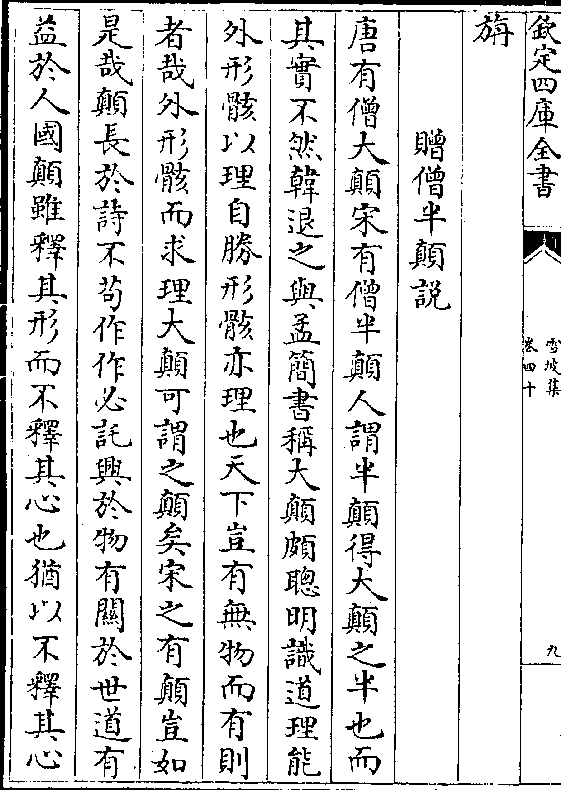 欽定四庫全書
雪坡集
卷四十
九
旃
贈僧半顛説
唐有僧大顛宋有僧半顛人謂半顛得大顛之半也而
其實不然韓退之與孟簡書稱大顛頗聰明識道理能
外形骸以理自勝形骸亦理也天下豈有無物而有則
者哉外形骸而求理大顛可謂之顛矣宋之有顛豈如
是哉顛長於詩不苟作作必託興於物有關於世道有
益於人國顛雖釋其形而不釋其心也猶以不釋其心